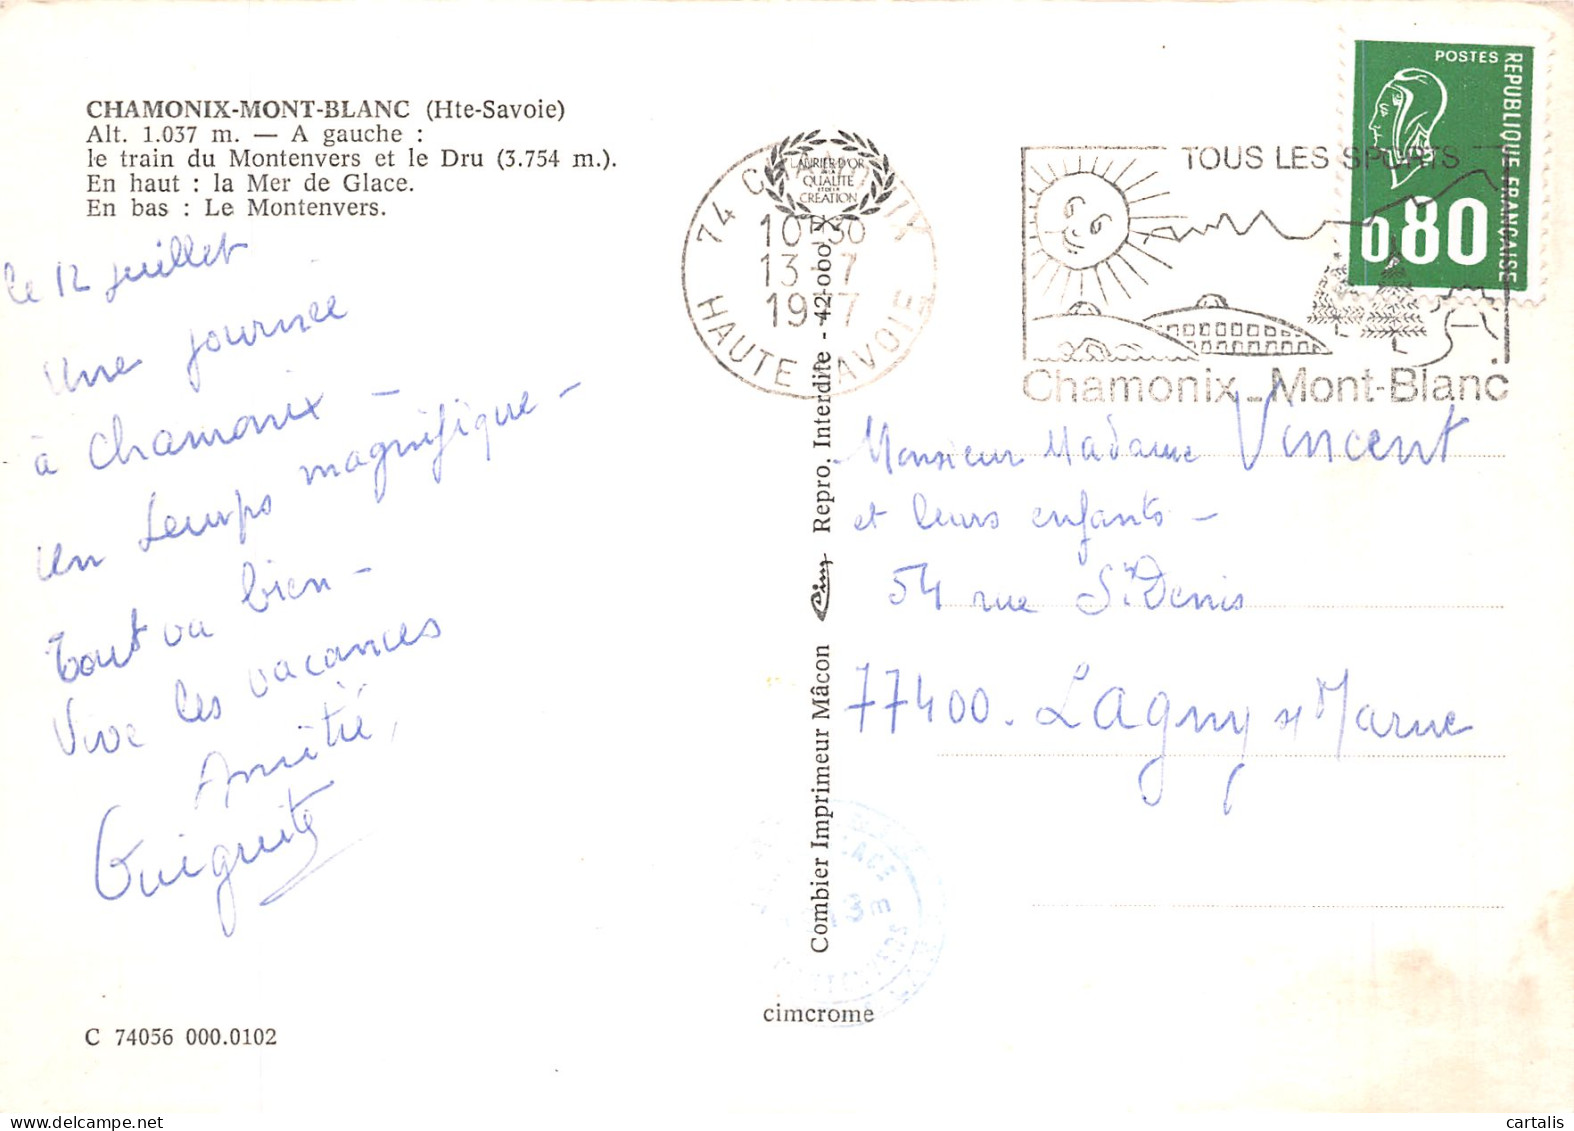 CHAMONIX-MONT-BLANC (Hte-Savoie)
Alt. 1.037 m. — A gauche :
le train du Montenvers et le Dru (3.754 m.).
En haut : la Mer de Glace.
En bas : Le Montenvers.
le 12 juillet
Une journée
à Chamonix -
un temps magnifique -
tout va bien -
Vive les vacances
Amitié,
C 74056 000.0102
LAURIER D'OR
DE LA
QUALITÉ
ET DE LA
CRÉATION
74 CHAMONIX
10 30
13 - 7
1977
HAUTE SAVOIE
TOUS LES SPORTS
Chamonix_Mont-Blanc
POSTES
REPUBLIQUE FRANÇAISE
0.80
Combier Imprimeur Mâcon Cim Repro. Interdite - 42-000
cimcrome
Monsieur Madame Vincent
et leurs enfants -
54 rue St Denis
77400. Lagny s/ Marne
cartalis